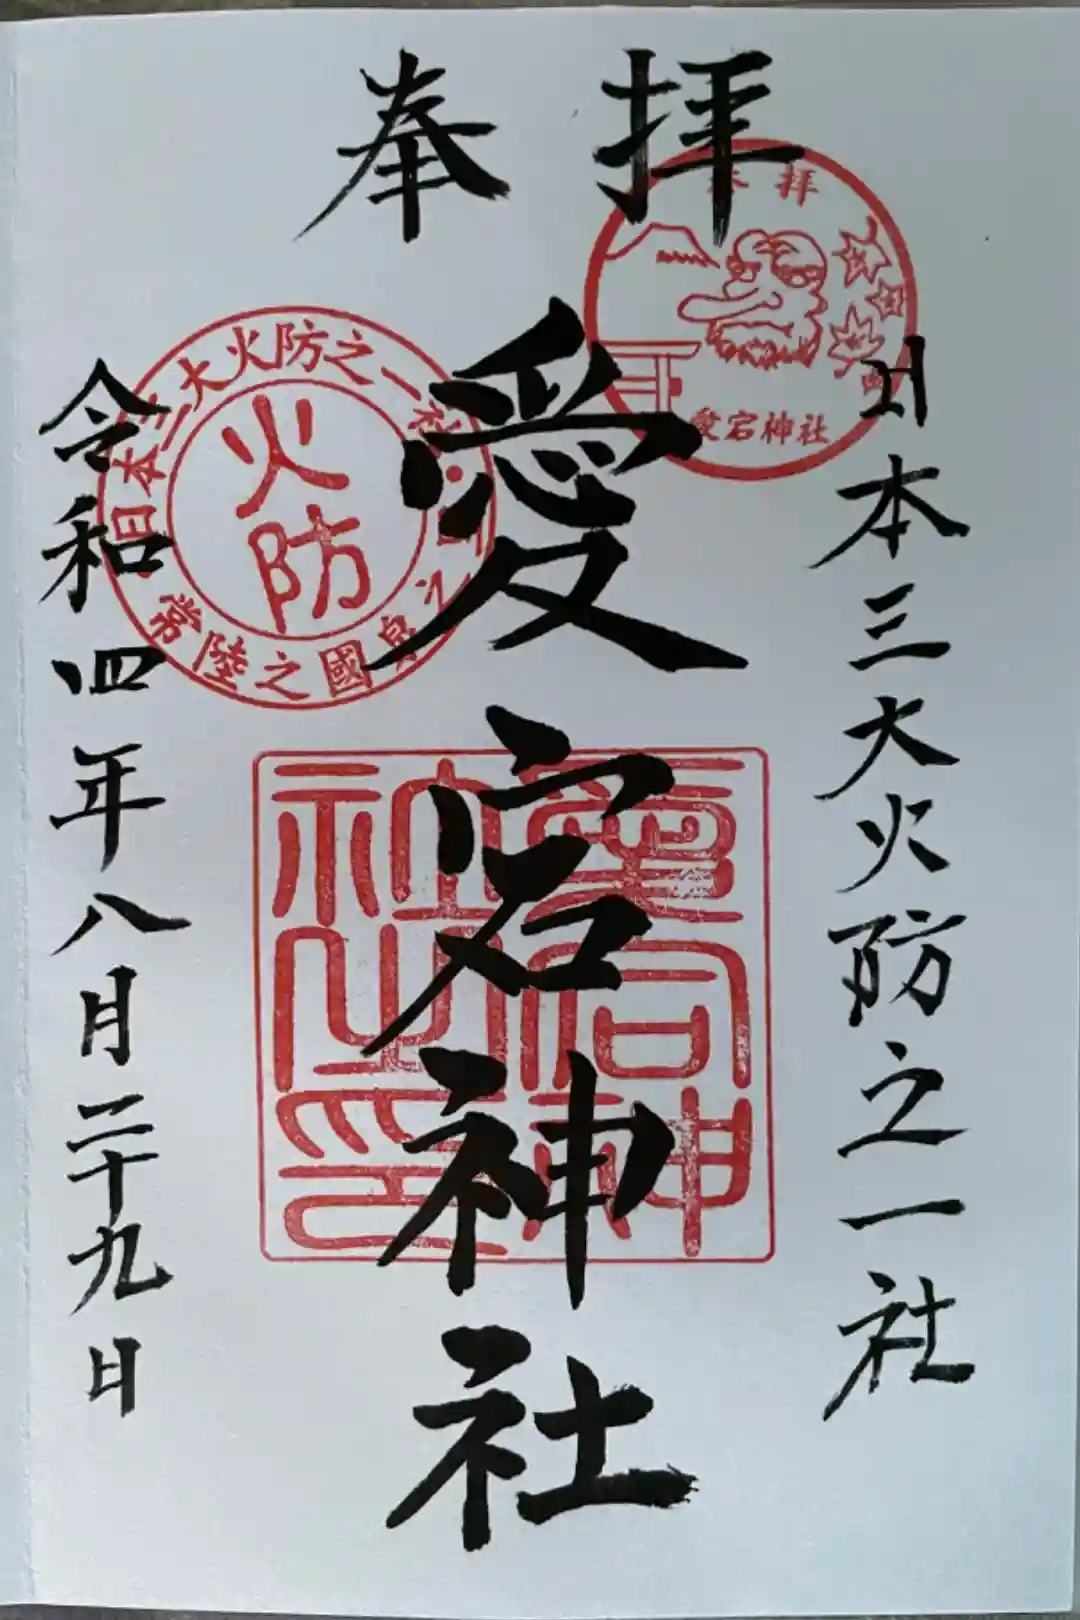 奉拝
日本三大火防之一社
愛宕神社
令和四年八月二十九日
奉拝
愛宕神社
日本三大火防之一社
火防
常陸之國
愛宕神
社之印